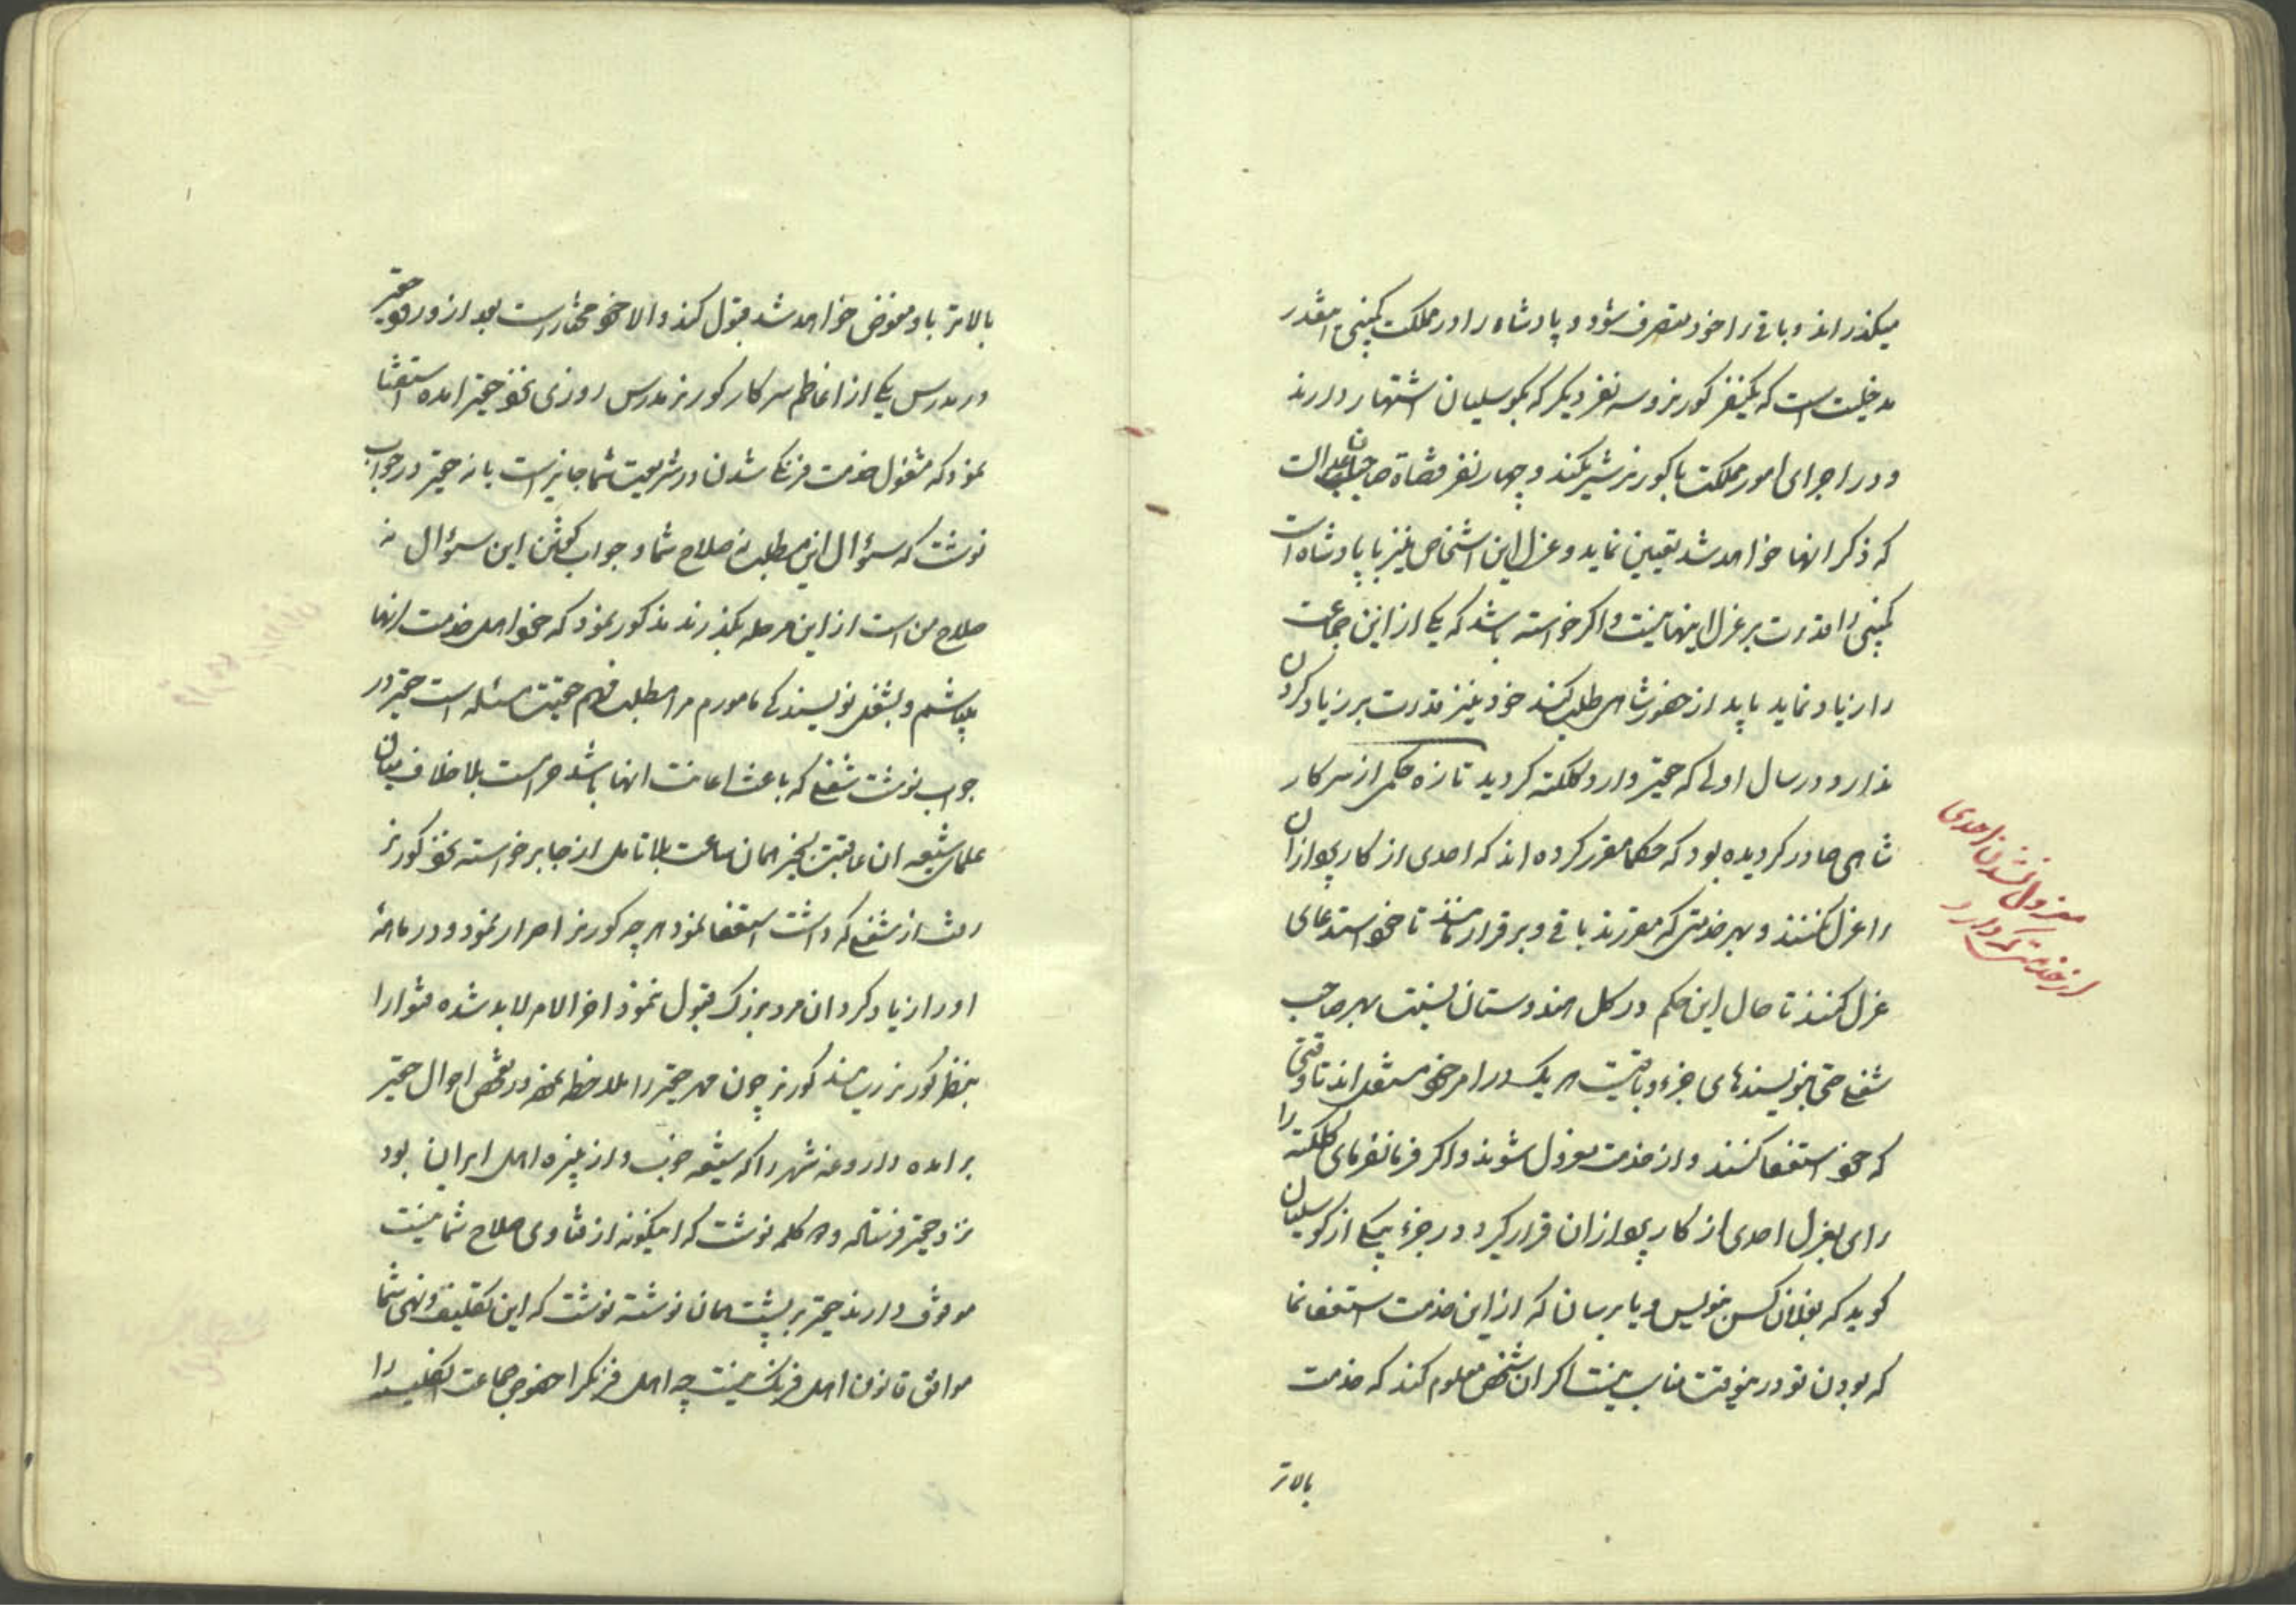 میکذراند و باقی را خود متصرف شود و پادشاه را در مملکت کمپنی اینقدر
مدخلیت است که یکنفر کورنر و سه نفر دیکر که بکوسلیان اشتهار دارند
و در اجرای امور مملکت با کورنر شریکند و چهار نفر قضاة صاحبان عدالت
که ذکر انها خواهد شد تعیین نماید و عزل این اشخاص نیز با پادشاه است
کمپنی را قدرت بر عزل اینها نیست و اکر خواسته باشد که یکی از این جماعت
را زیاد نماید باید از حضور شاهی طلب کند خود نیز قدرت بر زیاد کردن
ندارد و در سال اولی که حقیر وارد کلکته کردید تازه حکمی از سرکار
شاهی صادر کردیده بود که حکما مقرر کرده اند که احدی از کارپردازان
را عزل نکنند و بهر خدمتی که مقررند باقی و برقرار باشند تا خود استدعای
عزل کنند تا حال این حکم در کل هندوستان نسبت بهر صاحب
شغلی حتی نویسندهای جزء و باقیست هر یک در امر خود مستقل اند تا وقتی
که خود استعفا کنند و از خدمت معزول شوند و اکر فرمانفرمای کلکته را
رای بعزل احدی از کارپردازان قرار کیرد در جزء بیکی از کوسلیان
کوید که بفلان کس بنویس و یا برسان که از این خدمت استعفا نما
که بودن تو در اینوقت مناسب نیست اکر ان شخص معلوم کند که خدمت
بالاتر
معزول نشدن احدی
از خدمتی که دارد
بالاتر باو مفوض خواهد شد قبول کند و الا خود مختار است بعد از ورود حقیر
در مدرس یکی از اعاظم سرکار کورنر مدرس روزی بنزد حقیر امده استفتا
نمود که مشغول خدمت فرنکی شدن در شریعت شما جایز است یا نه حقیر در جواب
نوشت که سؤال این مطلب نه صلاح شما و جواب کفتن این سؤال نه
صلاح من است از این مرحله بکذرند مذکور نمود که من خواهی خدمت انها
باشم و بشغل نویسندکی مامورم مرا مطلب فهم حقیقت مسئله است حقیر در
جواب نوشت شغلی که باعث اعانت انها باشد حرام است بلا خلاف میان
علمای شیعه ان عاقبت بخیر همان ساعت بلا تامل از جا برخواسته بنزد کورنر
رفت از شغلی که داشت استعفا نمود هر چه کورنر اصرار نمود و در ماهانه
او را زیاد کرد ان مرد بزرک قبول ننمود اخر الامر لابد شده فتوا را
بنظر کورنر رسانید کورنر چون مهر حقیر را ملاحظه نمود در تفحص احوال حقیر
برامده داروغه شهر را که شیعه خوب و از نبیره اهل ایران بود
نزد حقیر فرستاد و دو کلمه نوشت که اینکونه از فتاوی صلاح شما نیست
موقوف دارند حقیر بر پشت همان نوشته نوشت که این تکلیف و نهی شما
موافق قانون اهل فرنک نیست چه اهل فرنک را خصوص جماعت انکلیس را